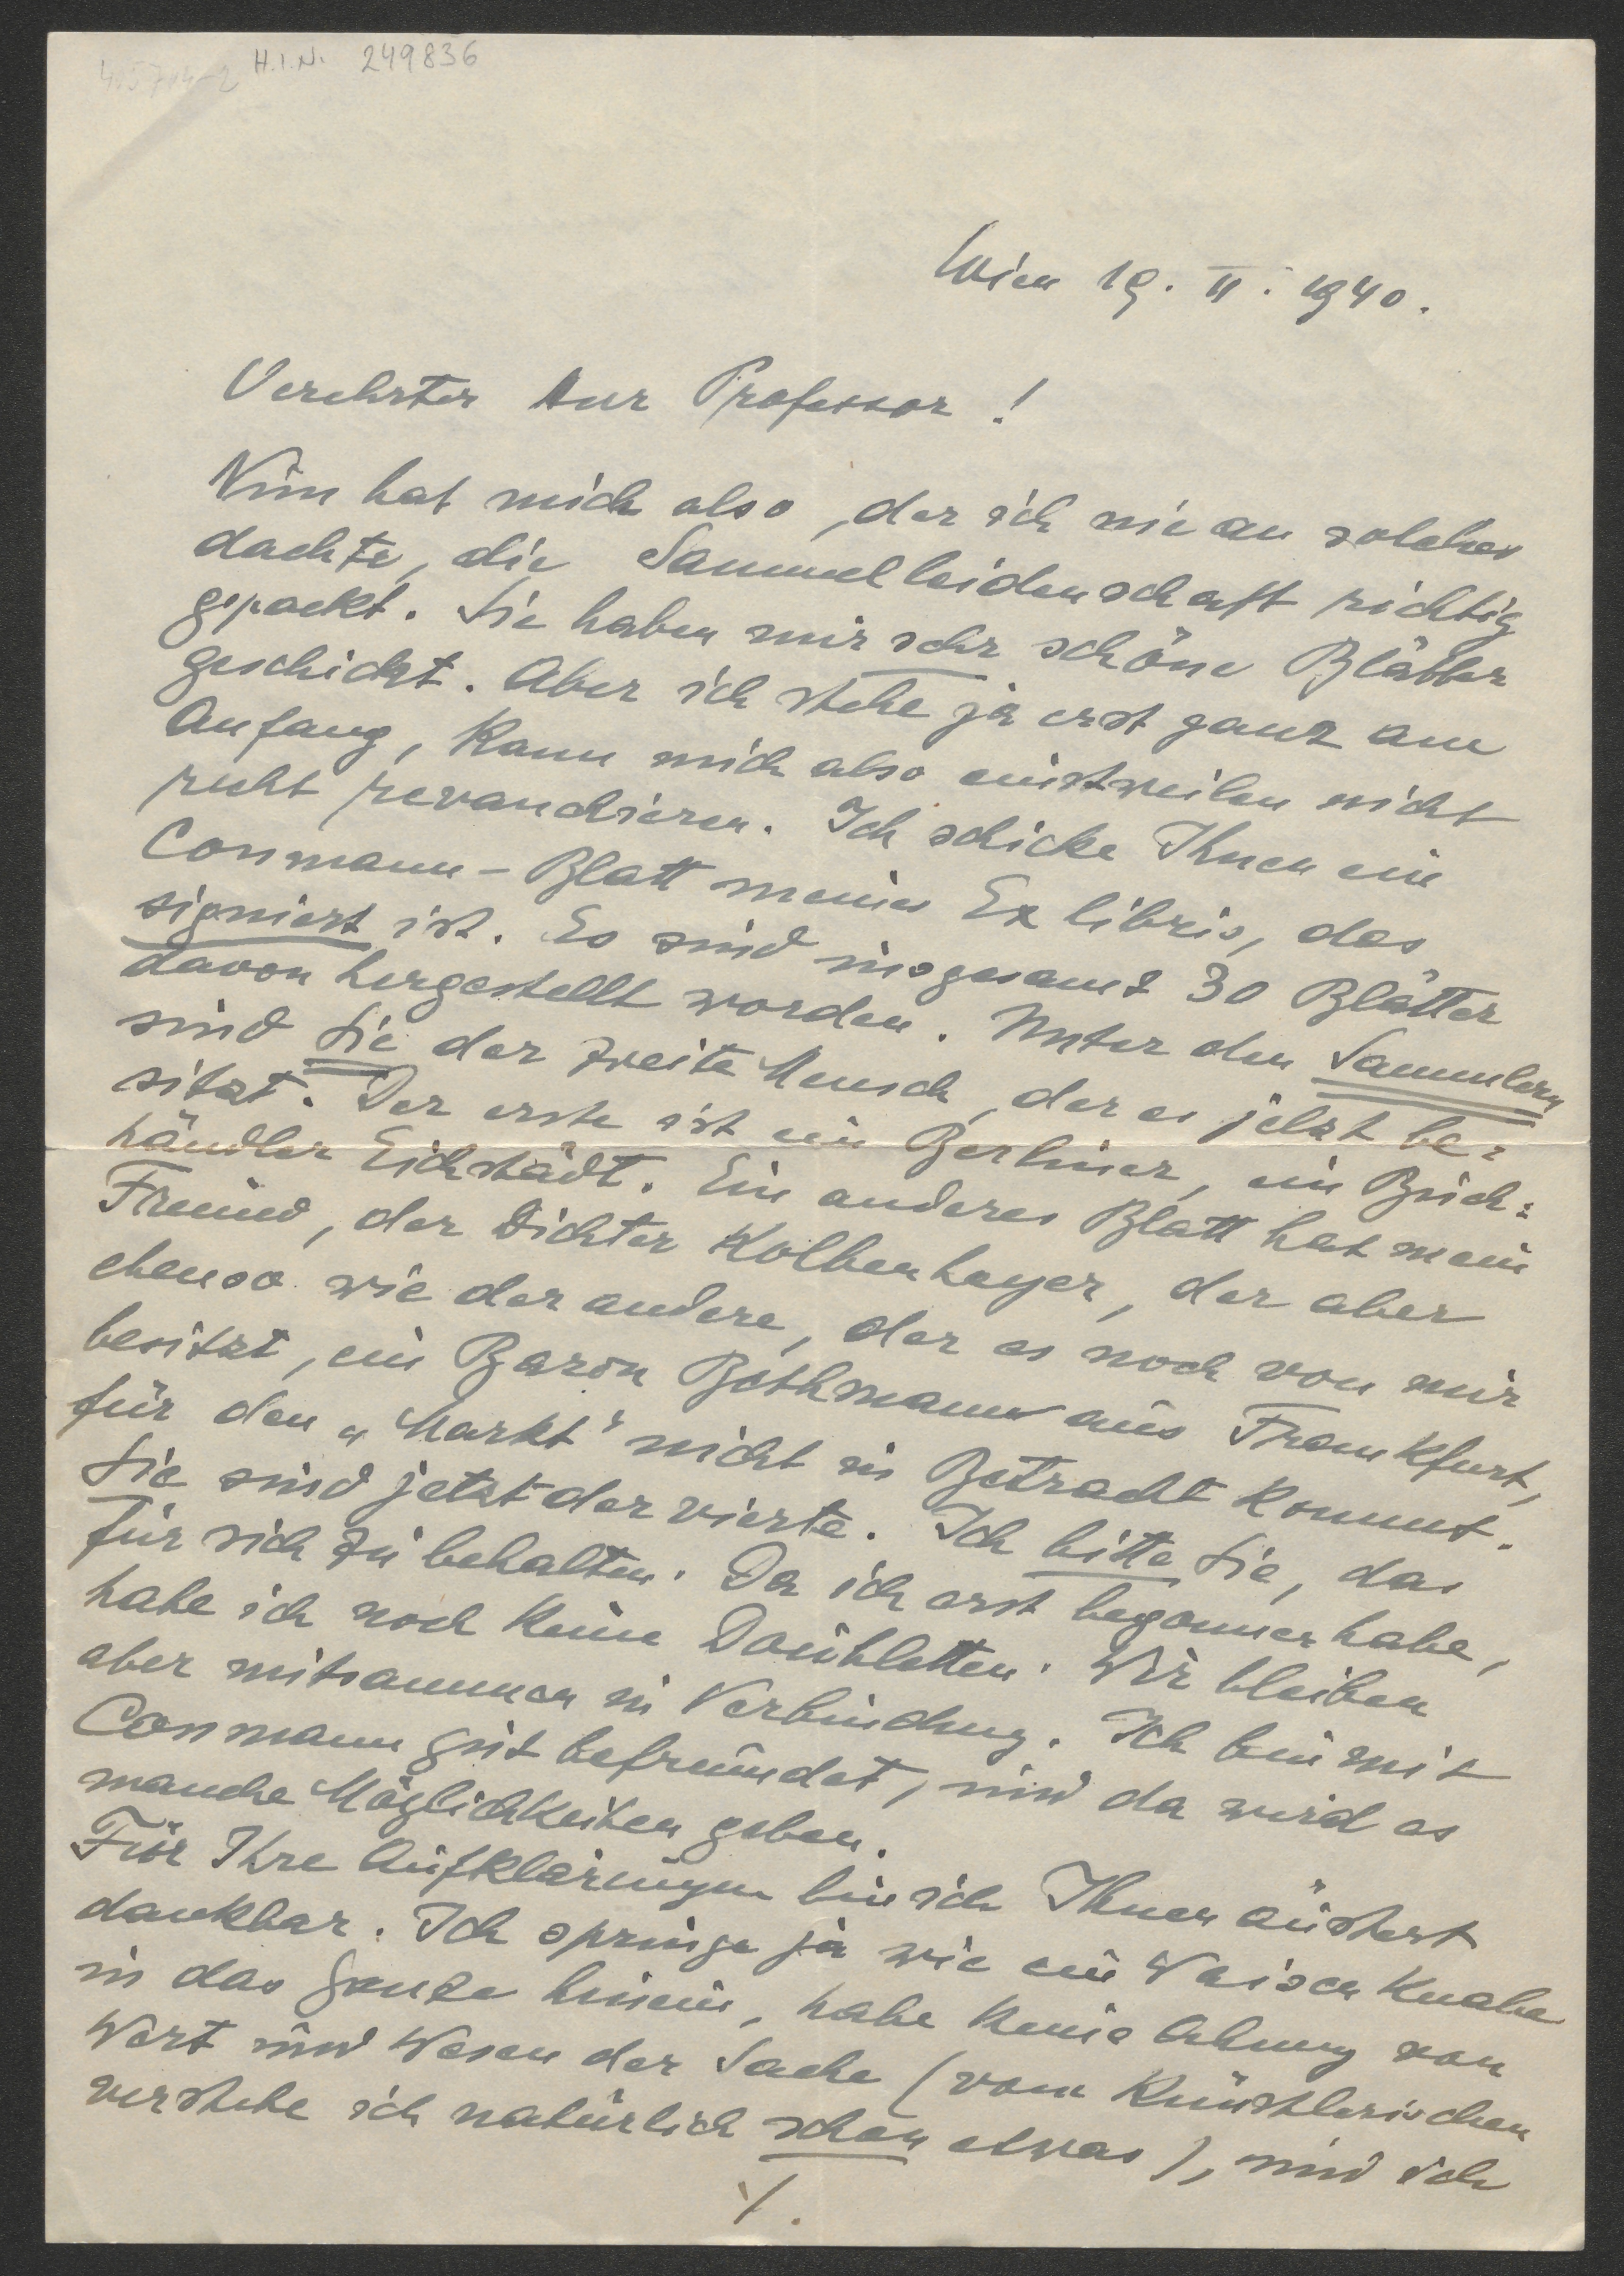 H.I.N. 249836
Wien 19. II. 1940.
Verehrter Herr Professor!
Nun hat mich also, der ich nie an solches
dachte, die Sammelleidenschaft richtig
gepackt. Sie haben mir sehr schöne Blätter
geschickt. Aber ich stehe ja erst ganz am
Anfang, kann mich also einstweilen nicht
recht revanchieren. Ich schicke Ihnen ein
Cosmann-Blatt meines Ex libris, das
signiert ist. Es sind insgesamt 30 Blätter
davon hergestellt worden. Unter den Sammlern
sind Sie der zweite Mensch, der es jetzt be=
sitzt. Der erste ist ein Berliner, ein Buch=
händler Eichstädt. Ein anderes Blatt hat mein
Freund, der Dichter Kolbenheyer, der aber
ebenso wie der andere, der es noch von mir
besitzt, ein Baron Bethmann aus Frankfurt,
für den „Markt" nicht in Betracht kommt.
Sie sind jetzt der vierte. Ich bitte Sie, das
für sich zu behalten. Da ich erst begonnen habe,
habe ich noch keine Doubletten. Wir bleiben
aber mitsammen in Verbindung. Ich bin mit
Cosmann gut befreundet, und da wird es
manche Möglichkeiten geben.
Für Ihre Aufklärungen bin ich Ihnen äusterst
dankbar. Ich springe ja wie ein Waisenknabe
in das Ganze hinein, habe keine Ahnung von
Wert und Wesen der Sache (vom Künstlerischen
verstehe ich natürlich schon etwas), und ich
./.